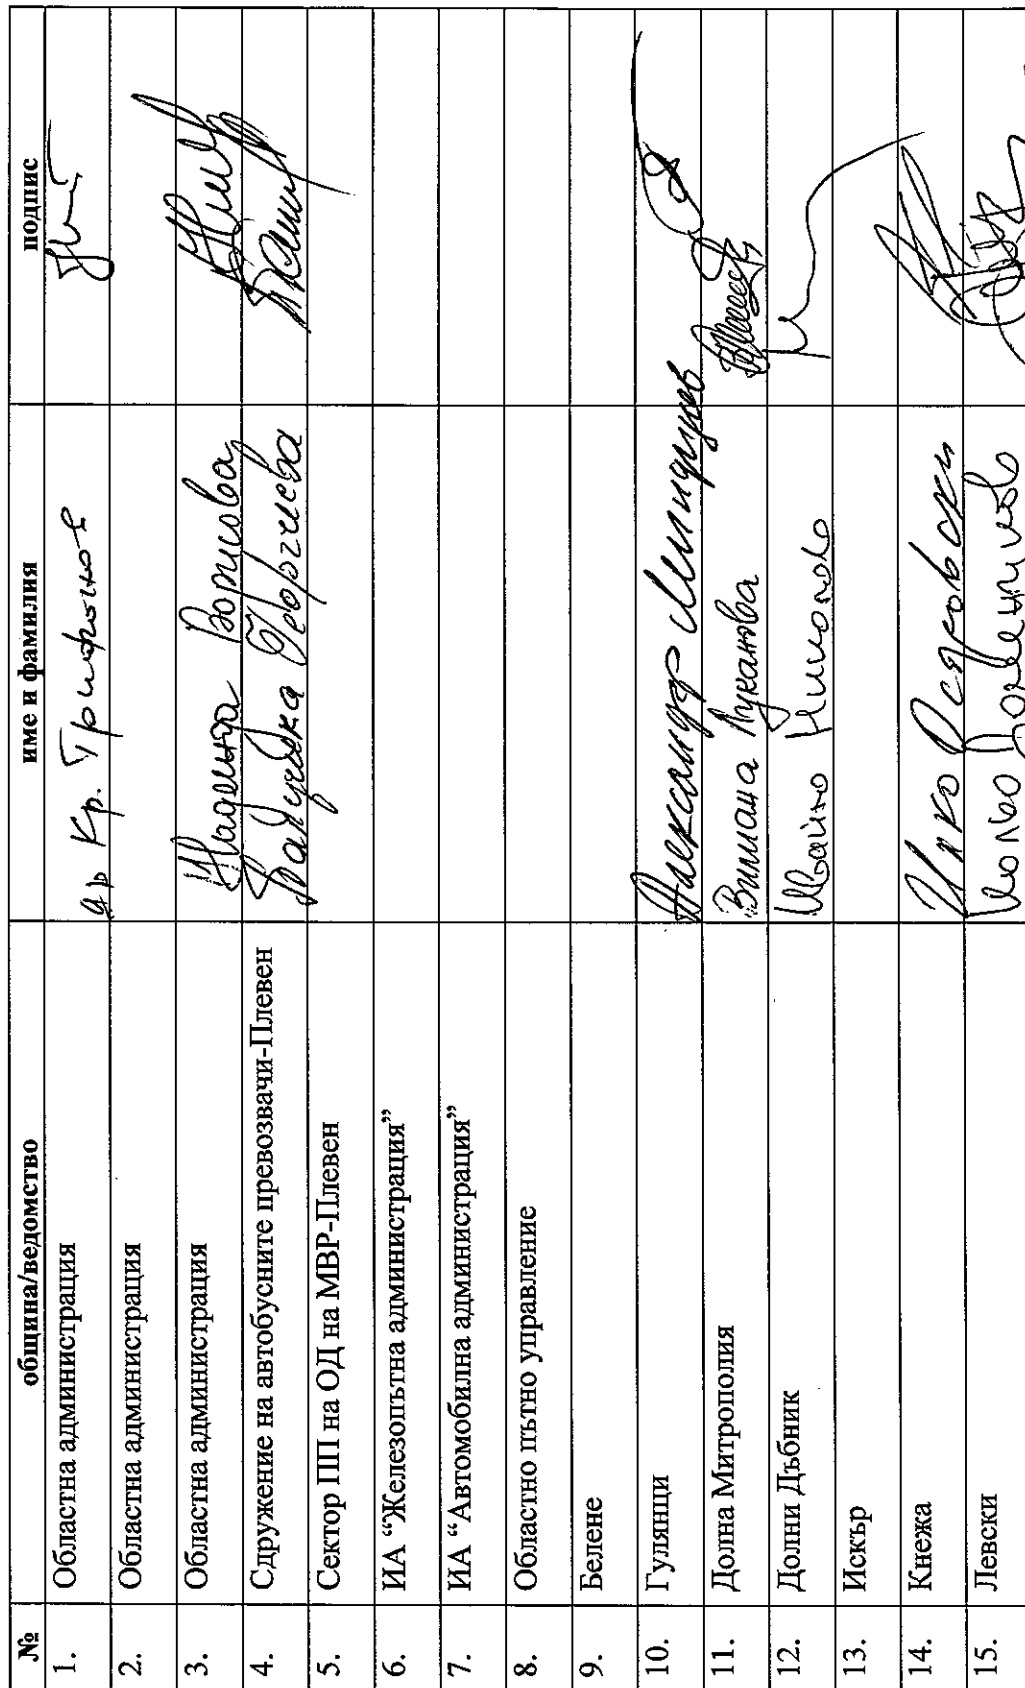 № община/ведомство име и фамилия подпис
1. Областна администрация др Кр. Трифонов
2. Областна администрация
3. Областна администрация Надежда Борисова
4. Сдружение на автобусните превозвачи-Плевен Георгиева
5. Сектор ПП на ОД на МВР-Плевен
6. ИА “Железопътна администрация”
7. ИА “Автомобилна администрация”
8. Областно пътно управление
9. Белене
10. Гулянци Александър
11. Долна Митрополия Вилиана Луканова
12. Долни Дъбник Ивайло Николов
13. Искър
14. Кнежа Илко
15. Левски